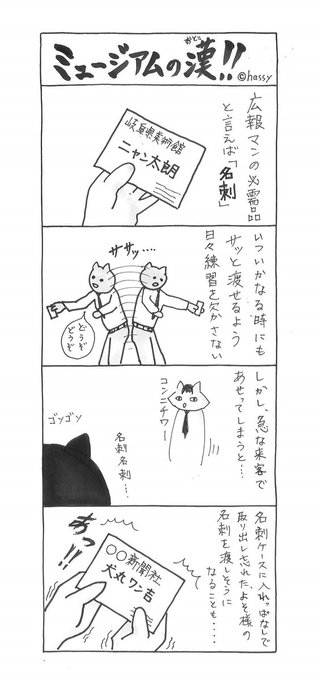 ミュージアムの漢!!
おとこ
©hassy
広報マンの必需品
と言えば「名刺」
岐阜県美術館
ニャン太朗
いついかなる時にも
サッと渡せるよう
日々練習を欠かさない
ササッ・・・・
どうぞ
どうぞ
しかし、急な来客で
あせってしまうと…
コンニチワー
ゴソゴソ
名刺名刺…
名刺ケースに入れっぱなしで
取り出し忘れた、よそ様の
名刺を渡しそうに
なることも・・・・
あっ!!
○○新聞社
犬丸ワン吉